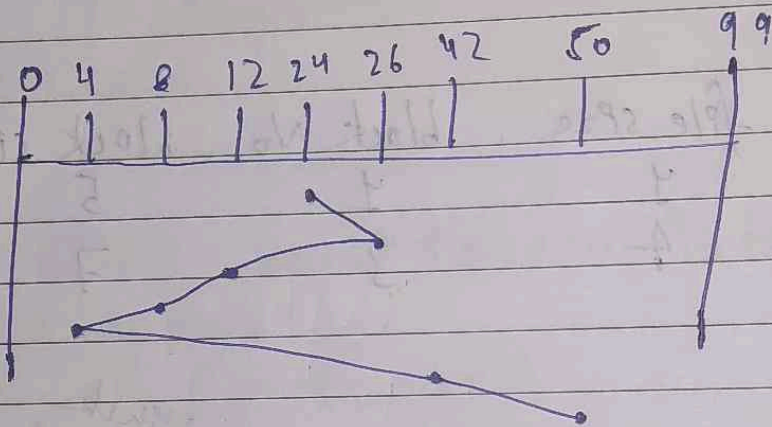 0 4 8 12 24 26 42 50 99